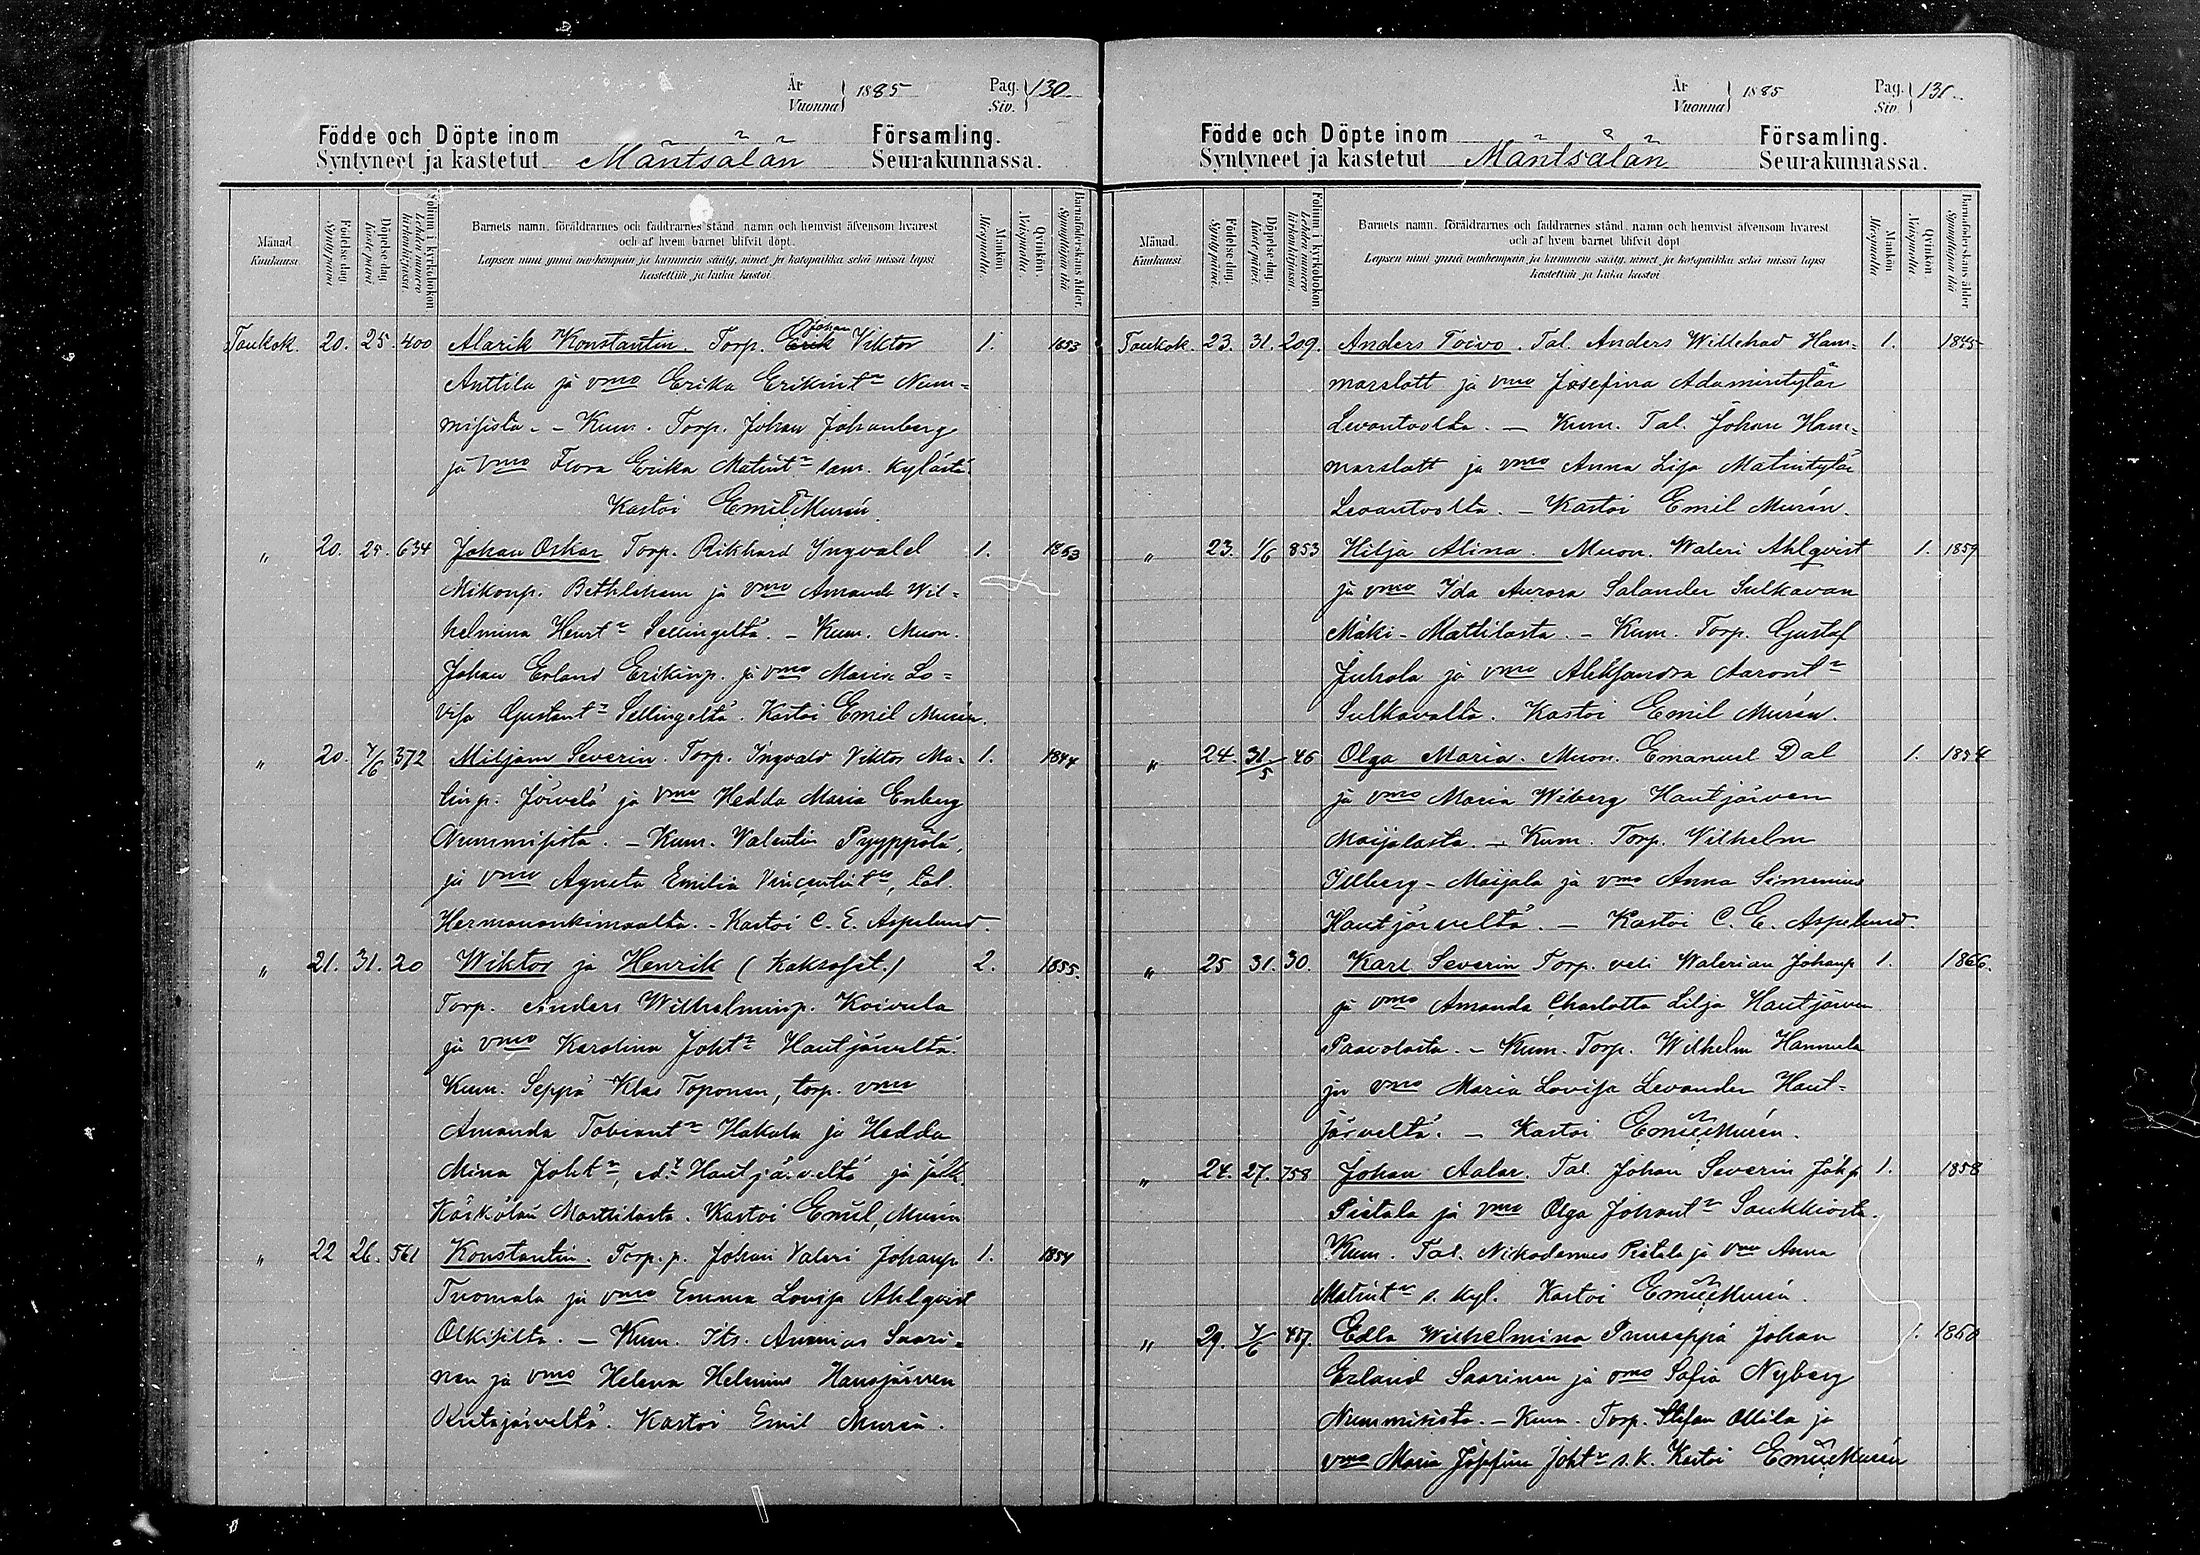 År
Vuonna } 1885 Pag.
Siv. } 130
Födde och Döpte inom Församling.
Syntyneet ja kastetut Mäntsälän Seurakunnassa.
Månad.
Kuukausi.
Födelse-dag.
Syntypäivä.
Döpelse-dag.
Kastepäivä.
Folium i kyrkoboken.
Lehden numero kirkonkirjassa.
Barnets namn, föräldrarnes och faddrarnes stånd, namn och hemvist äfvensom hvarest
och af hvem barnet blifvit döpt.
Lapsen nimi ynnä vanhempain ja kummein sääty, nimet ja kotopaikka sekä missä lapsi
kastettiin ja kuka kastoi.
Mankön
Miespuolta.
Qvinkön
Vaispuolta.
Barnaföderskans ålder.
Synnyttäjän ikä
Toukok. 20. 25. 400 Alarik Konstantin. Torp. Johan Erik Viktor 1. 1853
Anttila ja vmo Erika Erikint Num=
misista. - Kum. Torp. Johan Johanberg
ja vmo Flora Erika Matint sam. kylästä.
Kastoi Emil Murén.
" 20. 25. 634 Johan Oskar Torp. Rikhard Yngvald 1. 1863
Mikonp. Bethlehem ja vmo Amanda Wil=
helmina Henrt Sellingeltä. - Kum. Muon.
Johan Erland Erikinp. ja vmo Maria Lo=
visa Gustant Sellingeltä. Kastoi Emil Murén.
" 20. 7/6 372 Miljam Severin. Torp. Yngvald Viktor Ma= 1. 1844
tinp. Järvelä ja vmo Hedda Maria Enberg
Nummisista. - Kum. Valentin Pyyppölä,
ja vmo Agneta Emilia Vincentint, tal.
Hermanonkimaalta. - Kastoi C. E. Aspelund.
" 21. 31. 20 Wiktor ja Henrik (Kaksoset.) 2. 1855.
Torp. Anders Wilhelminp. Koivula
ja vmo Karolina Joht Hautjärveltä.
Kum. Seppä Klas Toponen, torp. vmo
Amanda Tobiant Hakala ja Hedda
Mina Joht, ed. Hautjärveltä ja jälk.
Kärkölän Marttilasta. Kastoi Emil Murén
" 22 26. 561 Konstantin. Torp. p. Johan Valeri Johanp. 1. 1854
Tuomala ja vmo Emma Lovisa Ahlqvist
Olkisilta. - Kum. Its. Ananias Saari=
nen ja vmo Helena Helenius Hansjärven
Kutajärveltä. Kastoi Emil Murén.
År
Vuonna } 1885 Pag.
Siv. } 131
Födde och Döpte inom Församling.
Syntyneet ja kastetut Mäntsälän Seurakunnassa.
Månad.
Kuukausi.
Födelse-dag.
Syntypäivä.
Döpelse-dag.
Kastepäivä.
Folium i kyrkoboken.
Lehden numero kirkonkirjassa.
Barnets namn, föräldrarnes och faddrarnes stånd, namn och hemvist äfvensom hvarest
och af hvem barnet blifvit döpt
Lapsen nimi ynnä vanhempain ja kummein sääty, nimet ja kotopaikka sekä missä lapsi
kastettiin ja kuka kastoi
Mankön
Miespuolta.
Qvinkön
Vaispuolta.
Barnaföderskans ålder
Synnyttäjän ikä
Toukok. 23. 31. 209. Anders Toivo. Tal. Anders Willehad Ham= 1. 1845
marslatt ja vmo Josefina Adamintytär
Levantovlta. - Kum. Tal. Johan Ham=
marslatt ja vmo Anna Lisa Matintytär
Levantovlta. - Kastoi Emil Murén.
" 23. 1/6 853 Hilja Alina. Muon. Waleri Ahlqvist 1. 1859
ja vmo Ida Aurora Salander Sulkavan
Mäki-Mattilasta. - Kum. Torp. Gustaf
Juhola ja vmo Aleksandra Aaront
Sulkavalta. Kastoi Emil Murén.
" 24. 31/5 46 Olga Maria. Muon. Emanuel Dal 1. 1854
ja vmo Maria Wiberg Hautjärven
Maijalasta. - Kum. Torp. Wilhelm
Illberg-Maijala ja vmo Anna Simenius
Hautjärveltä. - Kastoi C. E. Aspelund.
" 25 31. 30. Karl Severin Torp. veli Walerian Johanp 1. 1866.
ja vmo Amanda Charlotta Lilja Hautjärven
Paavolasta. - Kum. Torp. Wilhelm Hannula
ja vmo Maria Lovisa Levander Haut=
järveltä. - Kastoi Emil Murén.
" 24. 27. 758 Johan Aalar. Tal. Johan Severin Johp 1. 1858
Pietala ja vmo Olga Johant Saukkiosta.
Kum. Tal. Nikodemus Pietala ja vmo Anna
Matint s. kyl. Kastoi Emil Murén.
" 29. 7/6 407. Edla Wilhelmina Puuseppä Johan 1. 1860
Erland Saarinen ja vmo Sofia Nyberg
Nummisista. - Kum. Torp. Stefan Ollila ja
vmo Maria Josefina Joht s. k. Kastoi Emil Murén